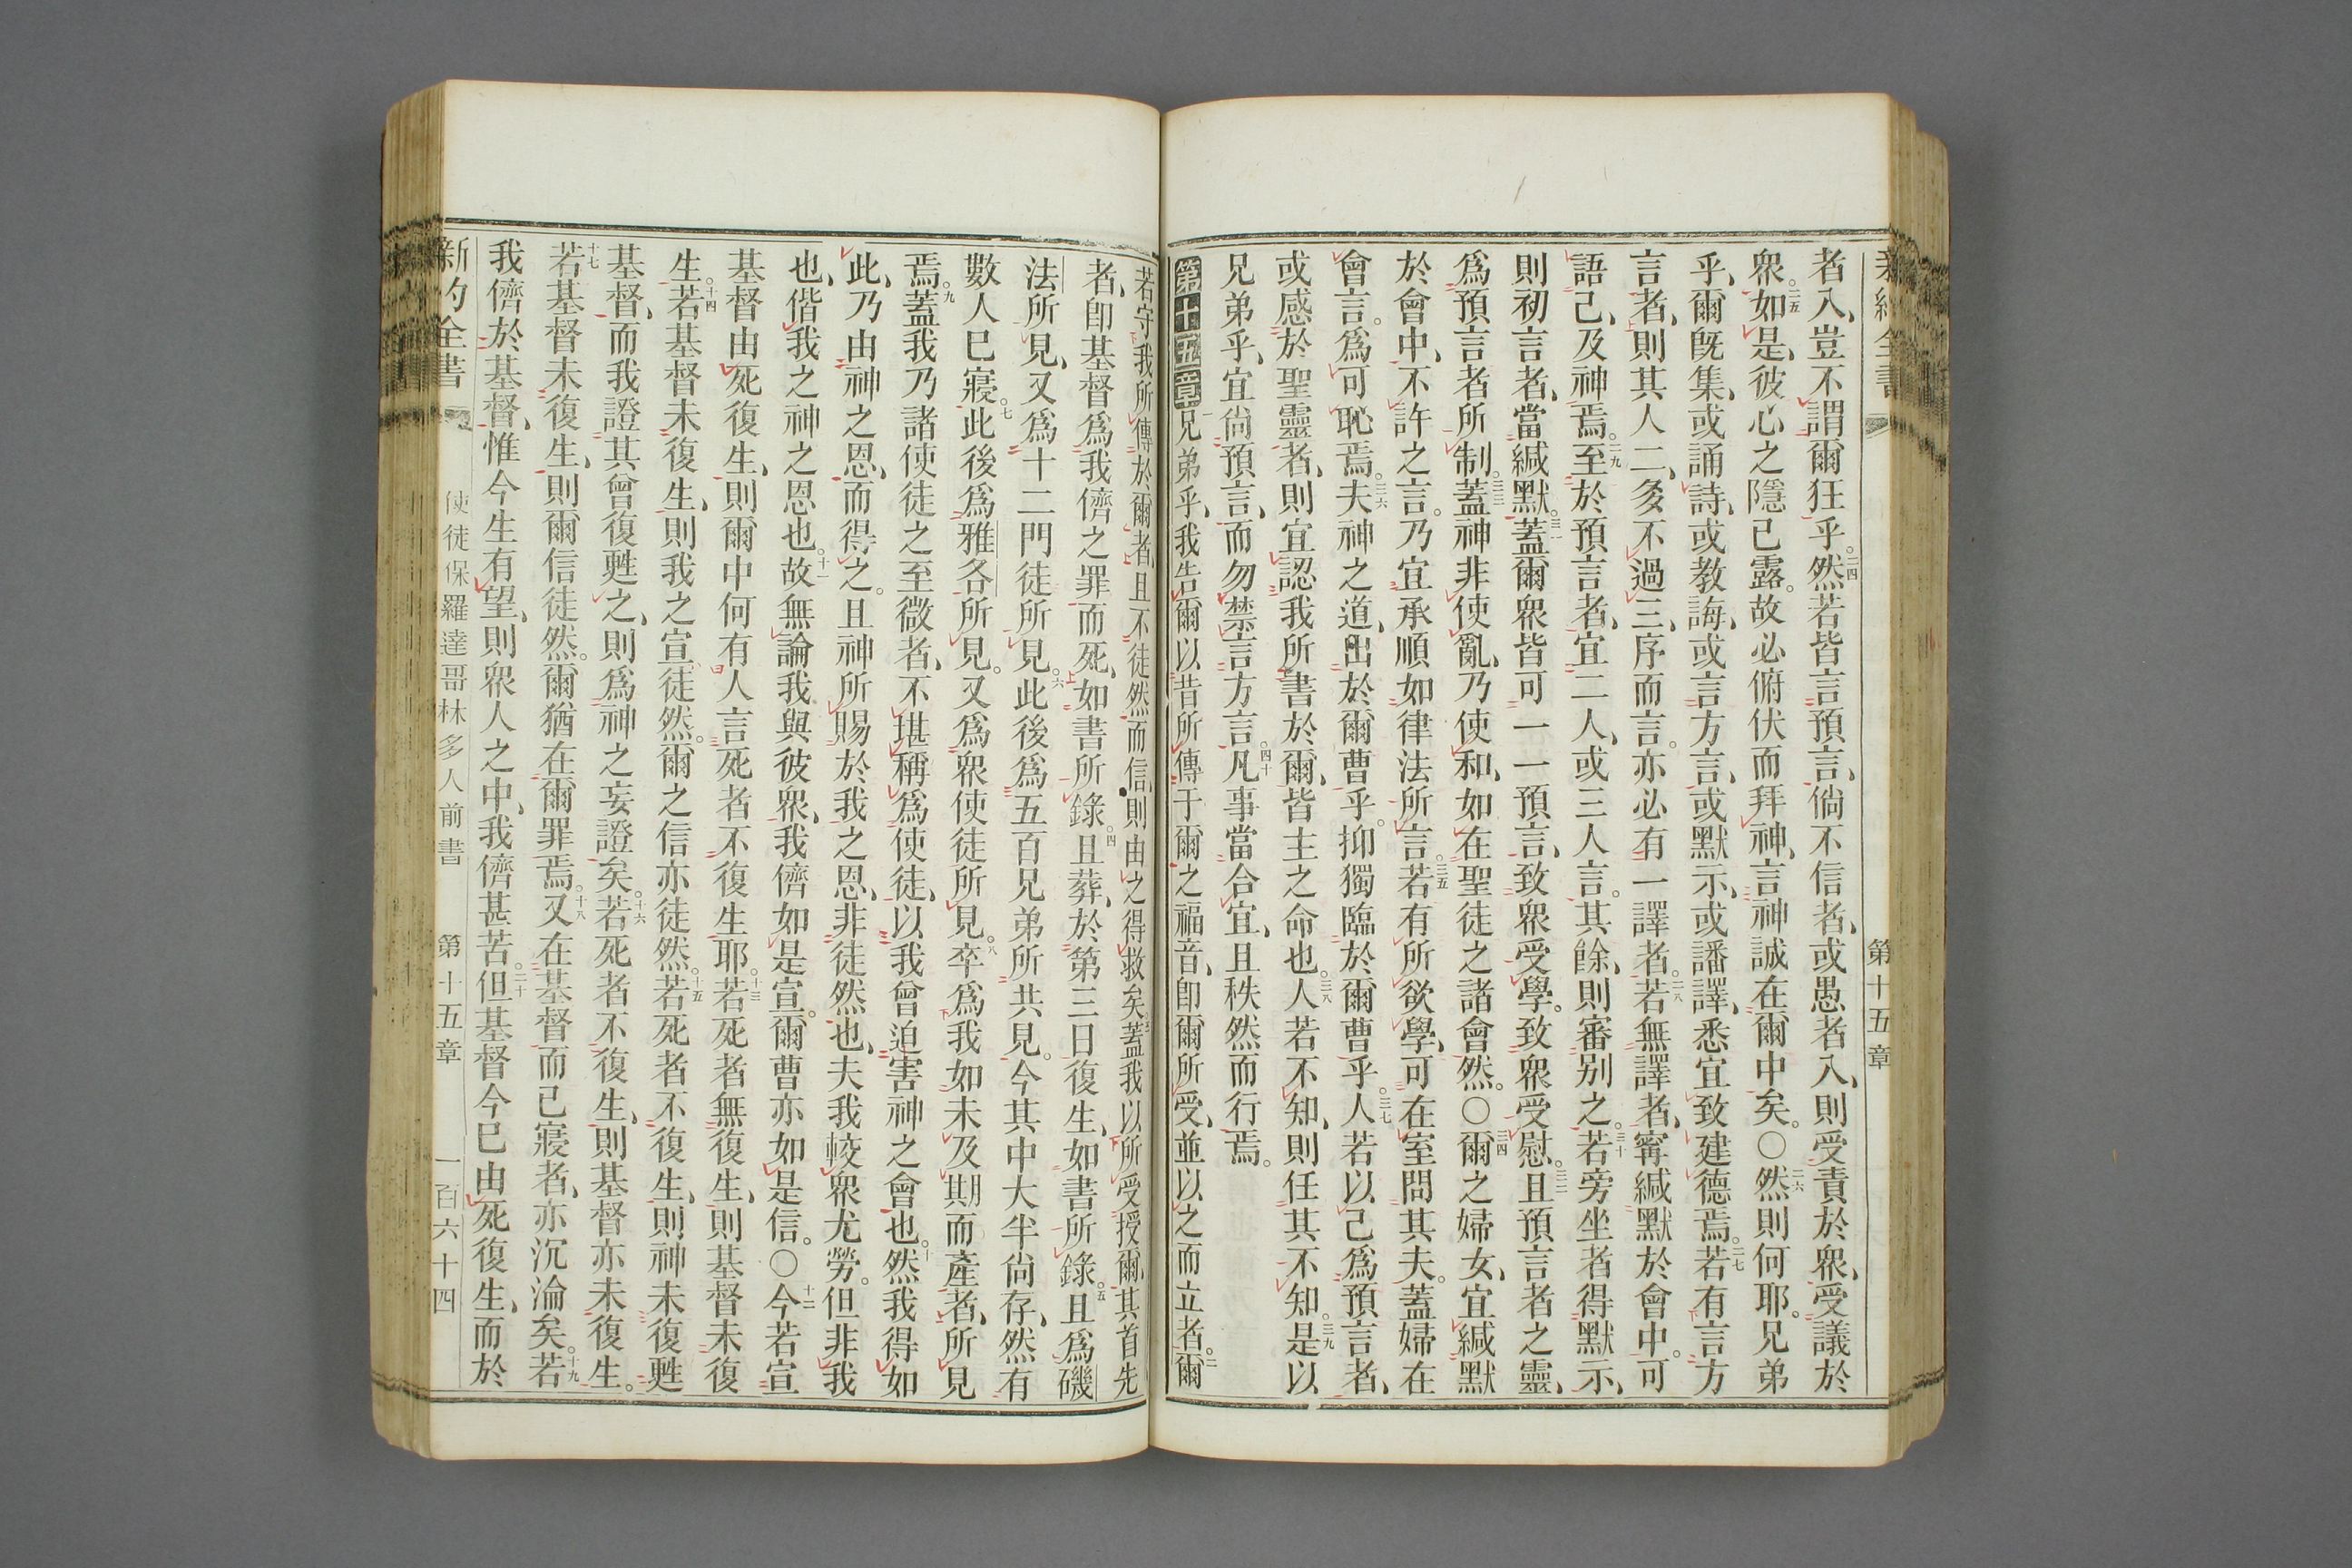 新約全書 第十五章
者入、豈不謂爾狂乎。二四然若皆言預言、倘不信者、或愚者入、則受責於衆、受議於
衆。二五如是、彼心之隱已露。故必俯伏而拜神、言神誠在爾中矣。〇二六然則何耶。兄弟
乎、爾旣集、或誦詩、或教誨、或言方言、或默示、或譒譯、悉宜致建德焉。二七若有言方
言者、則其人二、多不過三、序而言。亦必有一譯者。二八若無譯者、寗緘默於會中。可
語己、及神焉。二九至於預言者、宜二人、或三人言。其餘、則審別之。三十若旁坐者得默示、
則初言者、當緘默。三一蓋爾衆皆可一一預言、致衆受學。致衆受慰。三二且預言者之靈、
爲預言者所制。三三蓋神非使亂、乃使和、如在聖徒之諸會然。〇三四爾之婦女、宜緘默
於會中、不許之言。乃宜承順如律法所言。三五若有所欲學、可在室問其夫。蓋婦在
會言。爲可恥焉。三六夫神之道、出於爾曹乎。抑獨臨於爾曹乎。三七人若以己爲預言者、
或感於聖靈者、則宜認我所書於爾、皆主之命也。三八人若不知、則任其不知。三九是以
兄弟乎、宜尙預言、而勿禁言方言。四十凡事當合宜、且秩然而行焉。
第十五章一兄弟乎、我告爾以昔所傳于爾之福音、卽爾所受、並以之而立者。二爾
若守我所傳於爾者、且不徒然而信、則由之得救矣。三蓋我以所受授爾、其首先
者、卽基督爲我儕之罪而死、如書所錄。四且葬、於第三日復生、如書所錄。五且爲磯
法所見、又爲十二門徒所見。六此後爲五百兄弟所共見。今其中大半尙存、然有
數人已寢。七此後爲雅各所見。又爲衆使徒所見。八卒爲我如未及期而產者、所見
焉。九蓋我乃諸使徒之至微者、不堪稱爲使徒、以我曾迫害神之會也。十然我得如
此、乃由神之恩、而得之。且神所賜於我之恩、非徒然也、夫我較衆尤勞。但非我
也、偕我之神之恩也。十一故無論我與彼衆、我儕如是宣。爾曹亦如是信。〇十二今若宣
基督由死復生、則爾中何有人言死者不復生耶。十三若死者無復生、則基督未復
生。十四若基督未復生、則我之宣徒然。爾之信亦徒然。十五若死者不復生、則神未復甦
基督、而我證其曾復甦之、則爲神之妄證矣。十六若死者不復生、則基督亦未復生。
十七若基督未復生、則爾信徒然。爾猶在爾罪焉。十八又在基督而已寢者、亦沉淪矣。十九若
我儕於基督、惟今生有望、則衆人之中、我儕甚苦。二十但基督今已由死復生、而於
新約全書 使徒保羅達哥林多人前書 第十五章 一百六十四